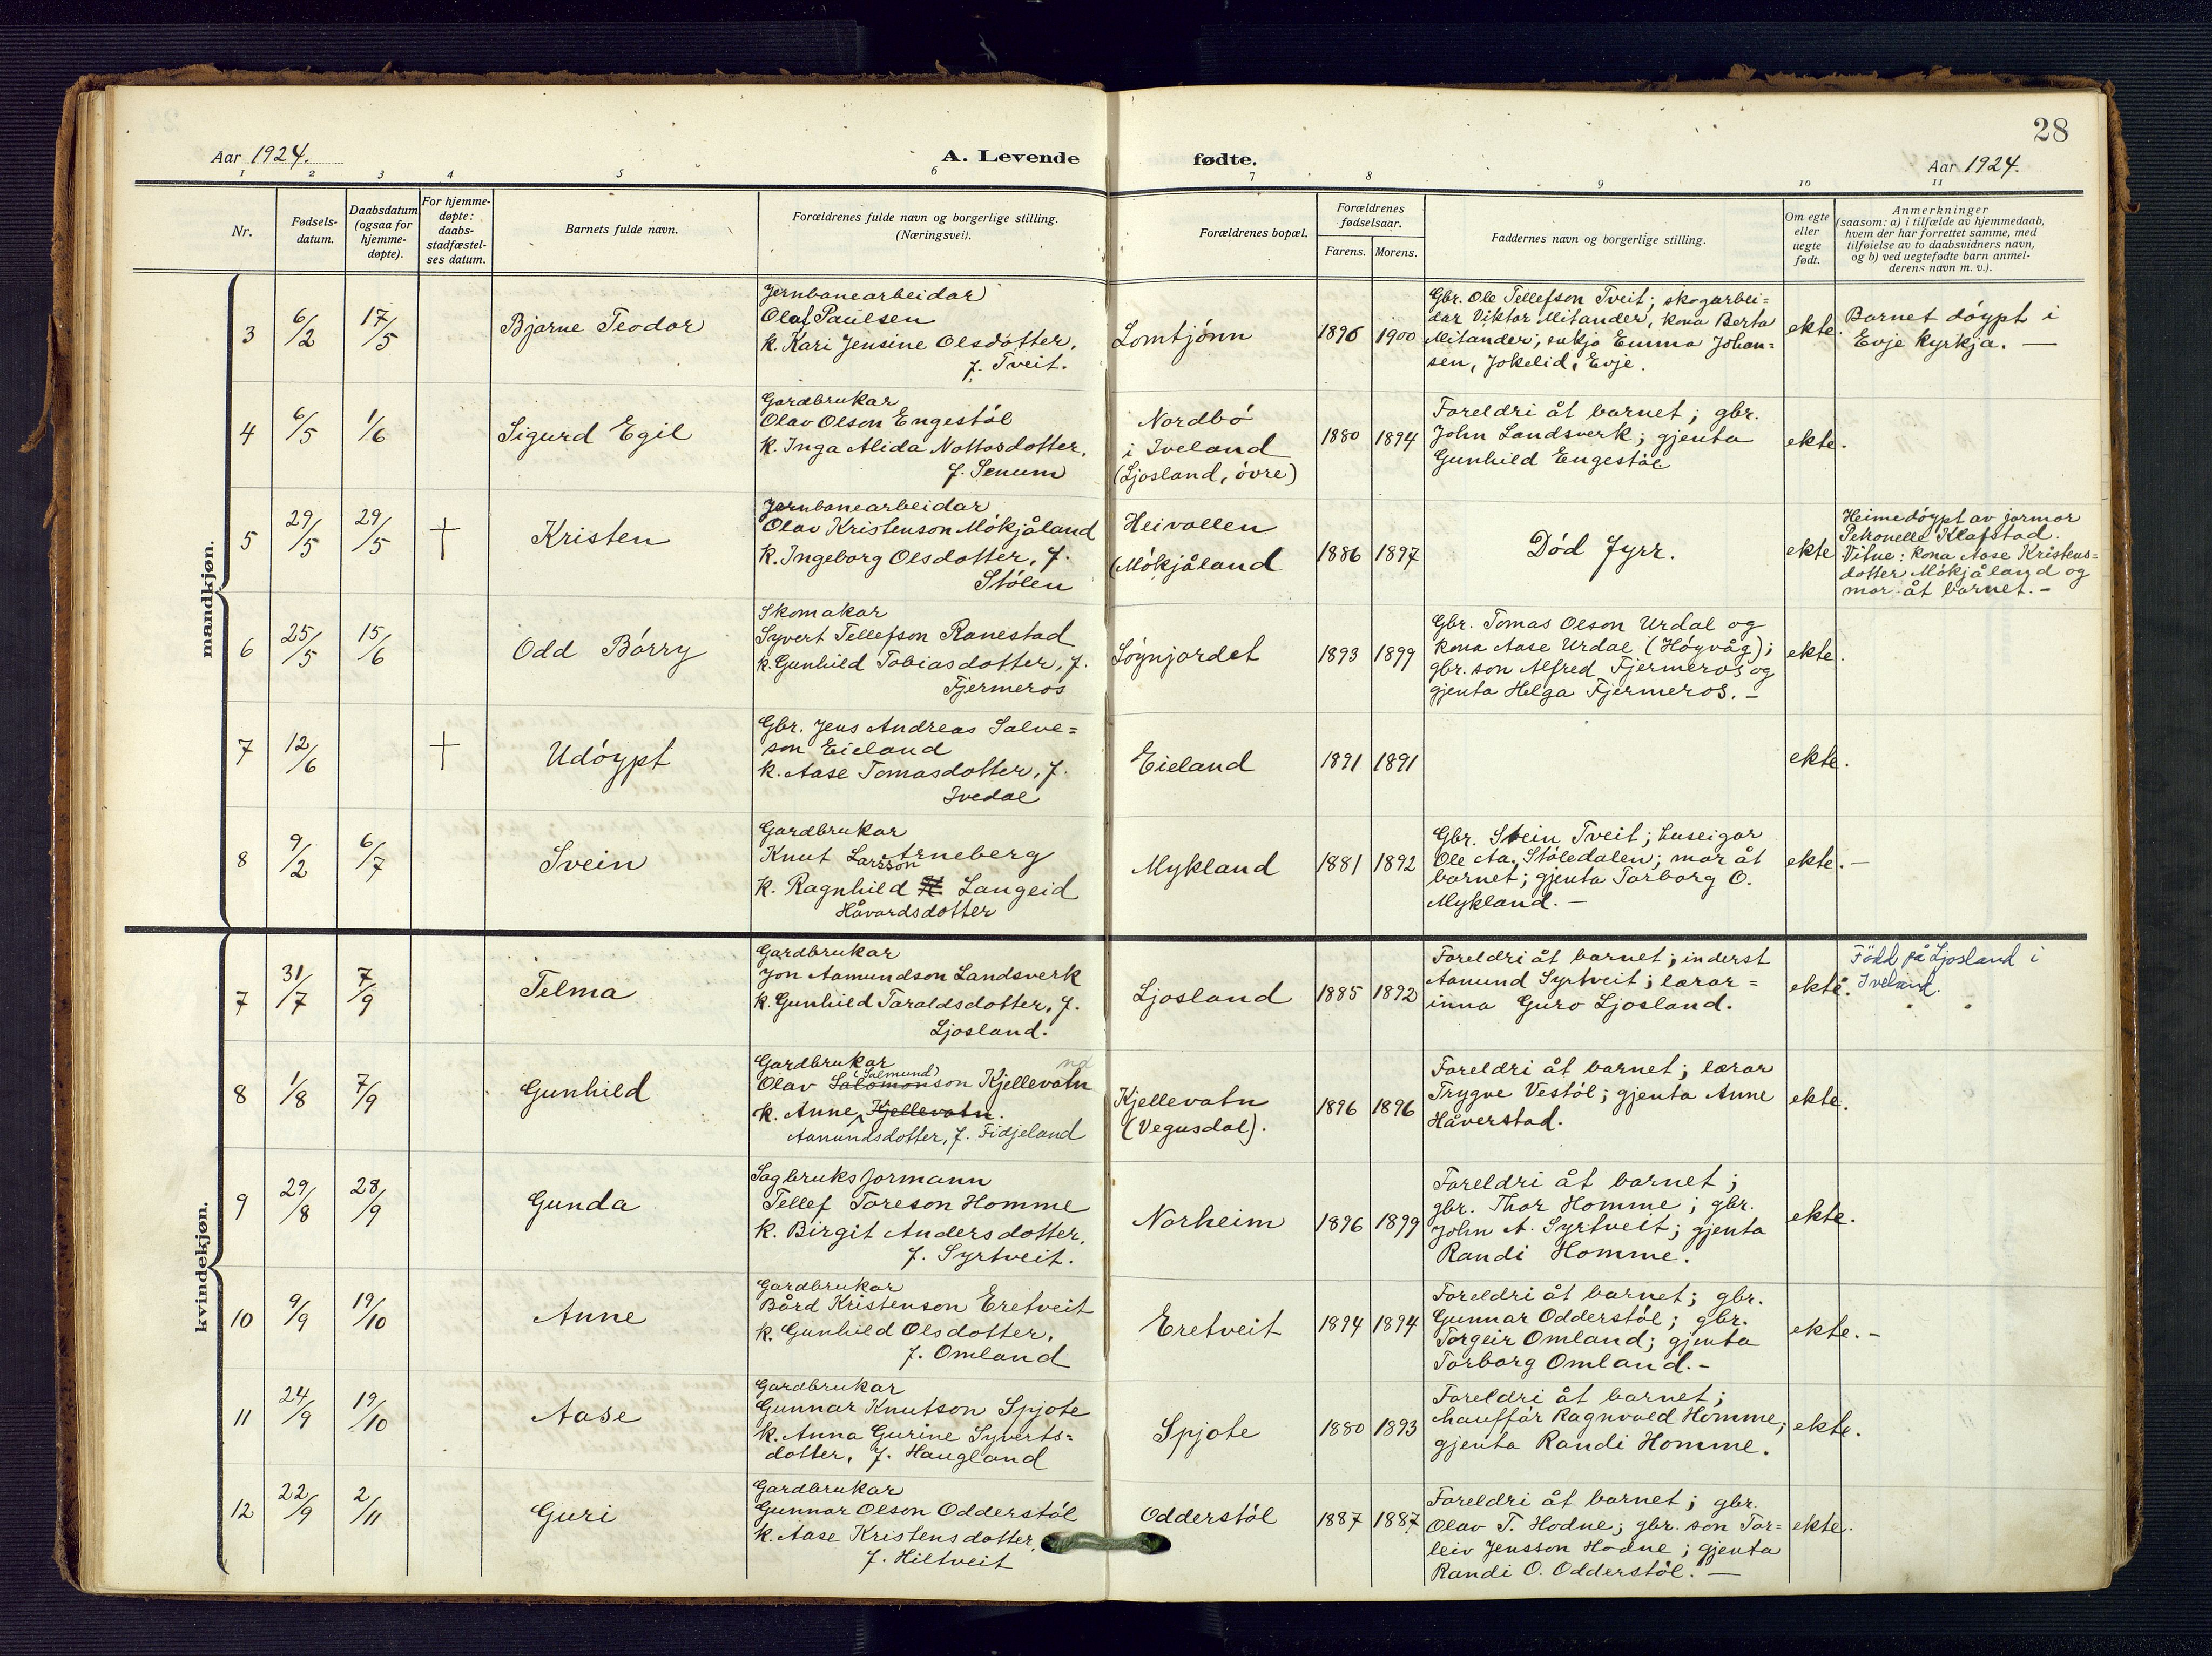 28
Aar 1924.
A. Levende
fødte.
Aar 1924.
1 2 3 4 5 6 7 8 9 10 11
Nr.
Fødsels-
datum.
Daabsdatum
(ogsaa for
hjemme-
døpte).
For hjemme-
døpte:
daabs-
stadfæstel-
ses datum.
Barnets fulde navn.
Forældrenes fulde navn og borgerlige stilling.
(Næringsvei).
Forældrenes bopæl.
Forældrenes
fødselsaar.
Farens. Morens.
Faddernes navn og borgerlige stilling.
Om egte
eller
uegte
født.
Anmerkninger
(saasom: a) i tilfælde av hjemmedaab,
hvem der har forrettet samme, med
tilføielse av to daabsvidners navn,
og b) ved uegtefødte barn anmel-
derens navn m. v.).
mandkjøn.
3
6/2
17/5
Bjarne Teodor
Jernbanearbeidar
Olaf Paulsen
k. Kari Jensine Olsdotter,
f. Tveit.
Lomtjönn
1896
1900
Gbr. Ole Tellefson Tveit; skogarbei=
dar Viktor Mitander, kona Berta
Mitander, enkja Emma Johan=
sen, Jokelid, Evje.
ekte.
Barnet döypt i
Evje kyrkja. —
4
6/5
1/6
Sigurd Egil
Gardbrukar
Olav Olson Engestöl
k. Inga Alida Nottosdotter,
f. Senum
Nordbö
i Iveland
(Ljosland, övre)
1880
1894
Foreldri åt barnet; gbr.
John Landsverk; gjenta
Gunhild Engestöl
ekte.
5
29/5
29/5
†
Kristen
Jernbanearbeidar
Olav Kristenson Mökjåland
k. Ingeborg Olsdotter, f.
Stölen
Heivollen
(Mökjåland
1886
1897
Död fyrr.
ekte
Heimedöypt av jormor
Petronelle Klafstad.
Vitne: kona Aase Kristens=
dotter Mökjåland og
mor åt barnet. –
6
25/5
15/6
Odd Börry
Skomakar
Syvert Tellefson Ranestad
k. Gunhild Tobiasdotter, f.
Fjermeros
Lögnjordet
1893
1899
Gbr. Tomas Olson Urdal og
kona Aase Urdal (Högvåg);
gbr. son Alfred Fjermeros og
gjenta Helga Fjermeros. –
ekte.
7
12/6
†
Udöypt
Gbr. Jens Andreas Salve=
son Eieland
k. Aase Tomasdotter, f.
Ivedal
Eieland
1891
1891
ekte.
8
9/2
6/7
Svein
Gardbrukar
Knut Larsson Arneberg
k. Ragnhild Langeid
Håvardsdotter
Mykland
1881
1892
Gbr. Stein Tveit; huseigar
Ole Aa. Stöledalen; mor åt
barnet; gjenta Torborg O.
Mykland. –
ekte. –
kvindekjøn.
7
31/7
7/9
Telma
Gardbrukar
Jon Aamundson Landsverk
k. Gunhild Taraldsdotter, f.
Ljosland.
Ljosland
1885
1892
Foreldri åt barnet; inderst
Aamund Syrtveit; lærar=
inna Guro Ljosland.
ekte.
Född på Ljosland i
Iveland.
8
1/8
7/9
Gunhild
Gardbrukar
(Salmund)
Olav Salomonson Kjellevatn
k. Anne Kjellevatn.
Aamundsdotter, f. Fidjeland
Kjellevatn
(Vegusdal).
1896
1896
Foreldri åt barnet; lærar
Trygve Vestöl; gjenta Anne
Håverstad.
ekte.
9
29/8
28/9
Gunda
Sagbruksformann
Tellef Toreson Homme
k. Birgit Andersdotter,
f. Syrtveit.
Norheim
1896
1899
Foreldri åt barnet;
gbr. Thor Homme; gbr.
John A. Syrtveit; gjenta
Randi Homme.
ekte.
10
9/9
19/10
Anne
Gardbrukar
Bård Kristenson Eretveit
k. Gunhild Olsdotter,
f. Omland
Eretveit
1894
1894
Foreldri åt barnet; gbr.
Gunnar Odderstöl; gbr.
Torgeir Omland; gjenta
Torborg Omland. –
ekte. –
11
24/9
19/10
Aase
Gardbrukar
Gunnar Knutson Spjote
k. Anna Gurine Syverts=
dotter, f. Haugland
Spjote
1880
1893
Foreldri åt barnet;
chaufför Ragnvald Homme;
gjenta Randi Homme.
ekte.
12
22/9
2/11
Guri
Gardbrukar
Gunnar Olson Odderstöl
k. Aase Kristensdotter,
f. Hiltveit
Odderstöl
1887
1887
Foreldri åt barnet; gbr.
Olav T. Hodne; gbr. son Tor=
leiv Jensson Hodne; gjenta
Randi O. Odderstöl. —
ekte.